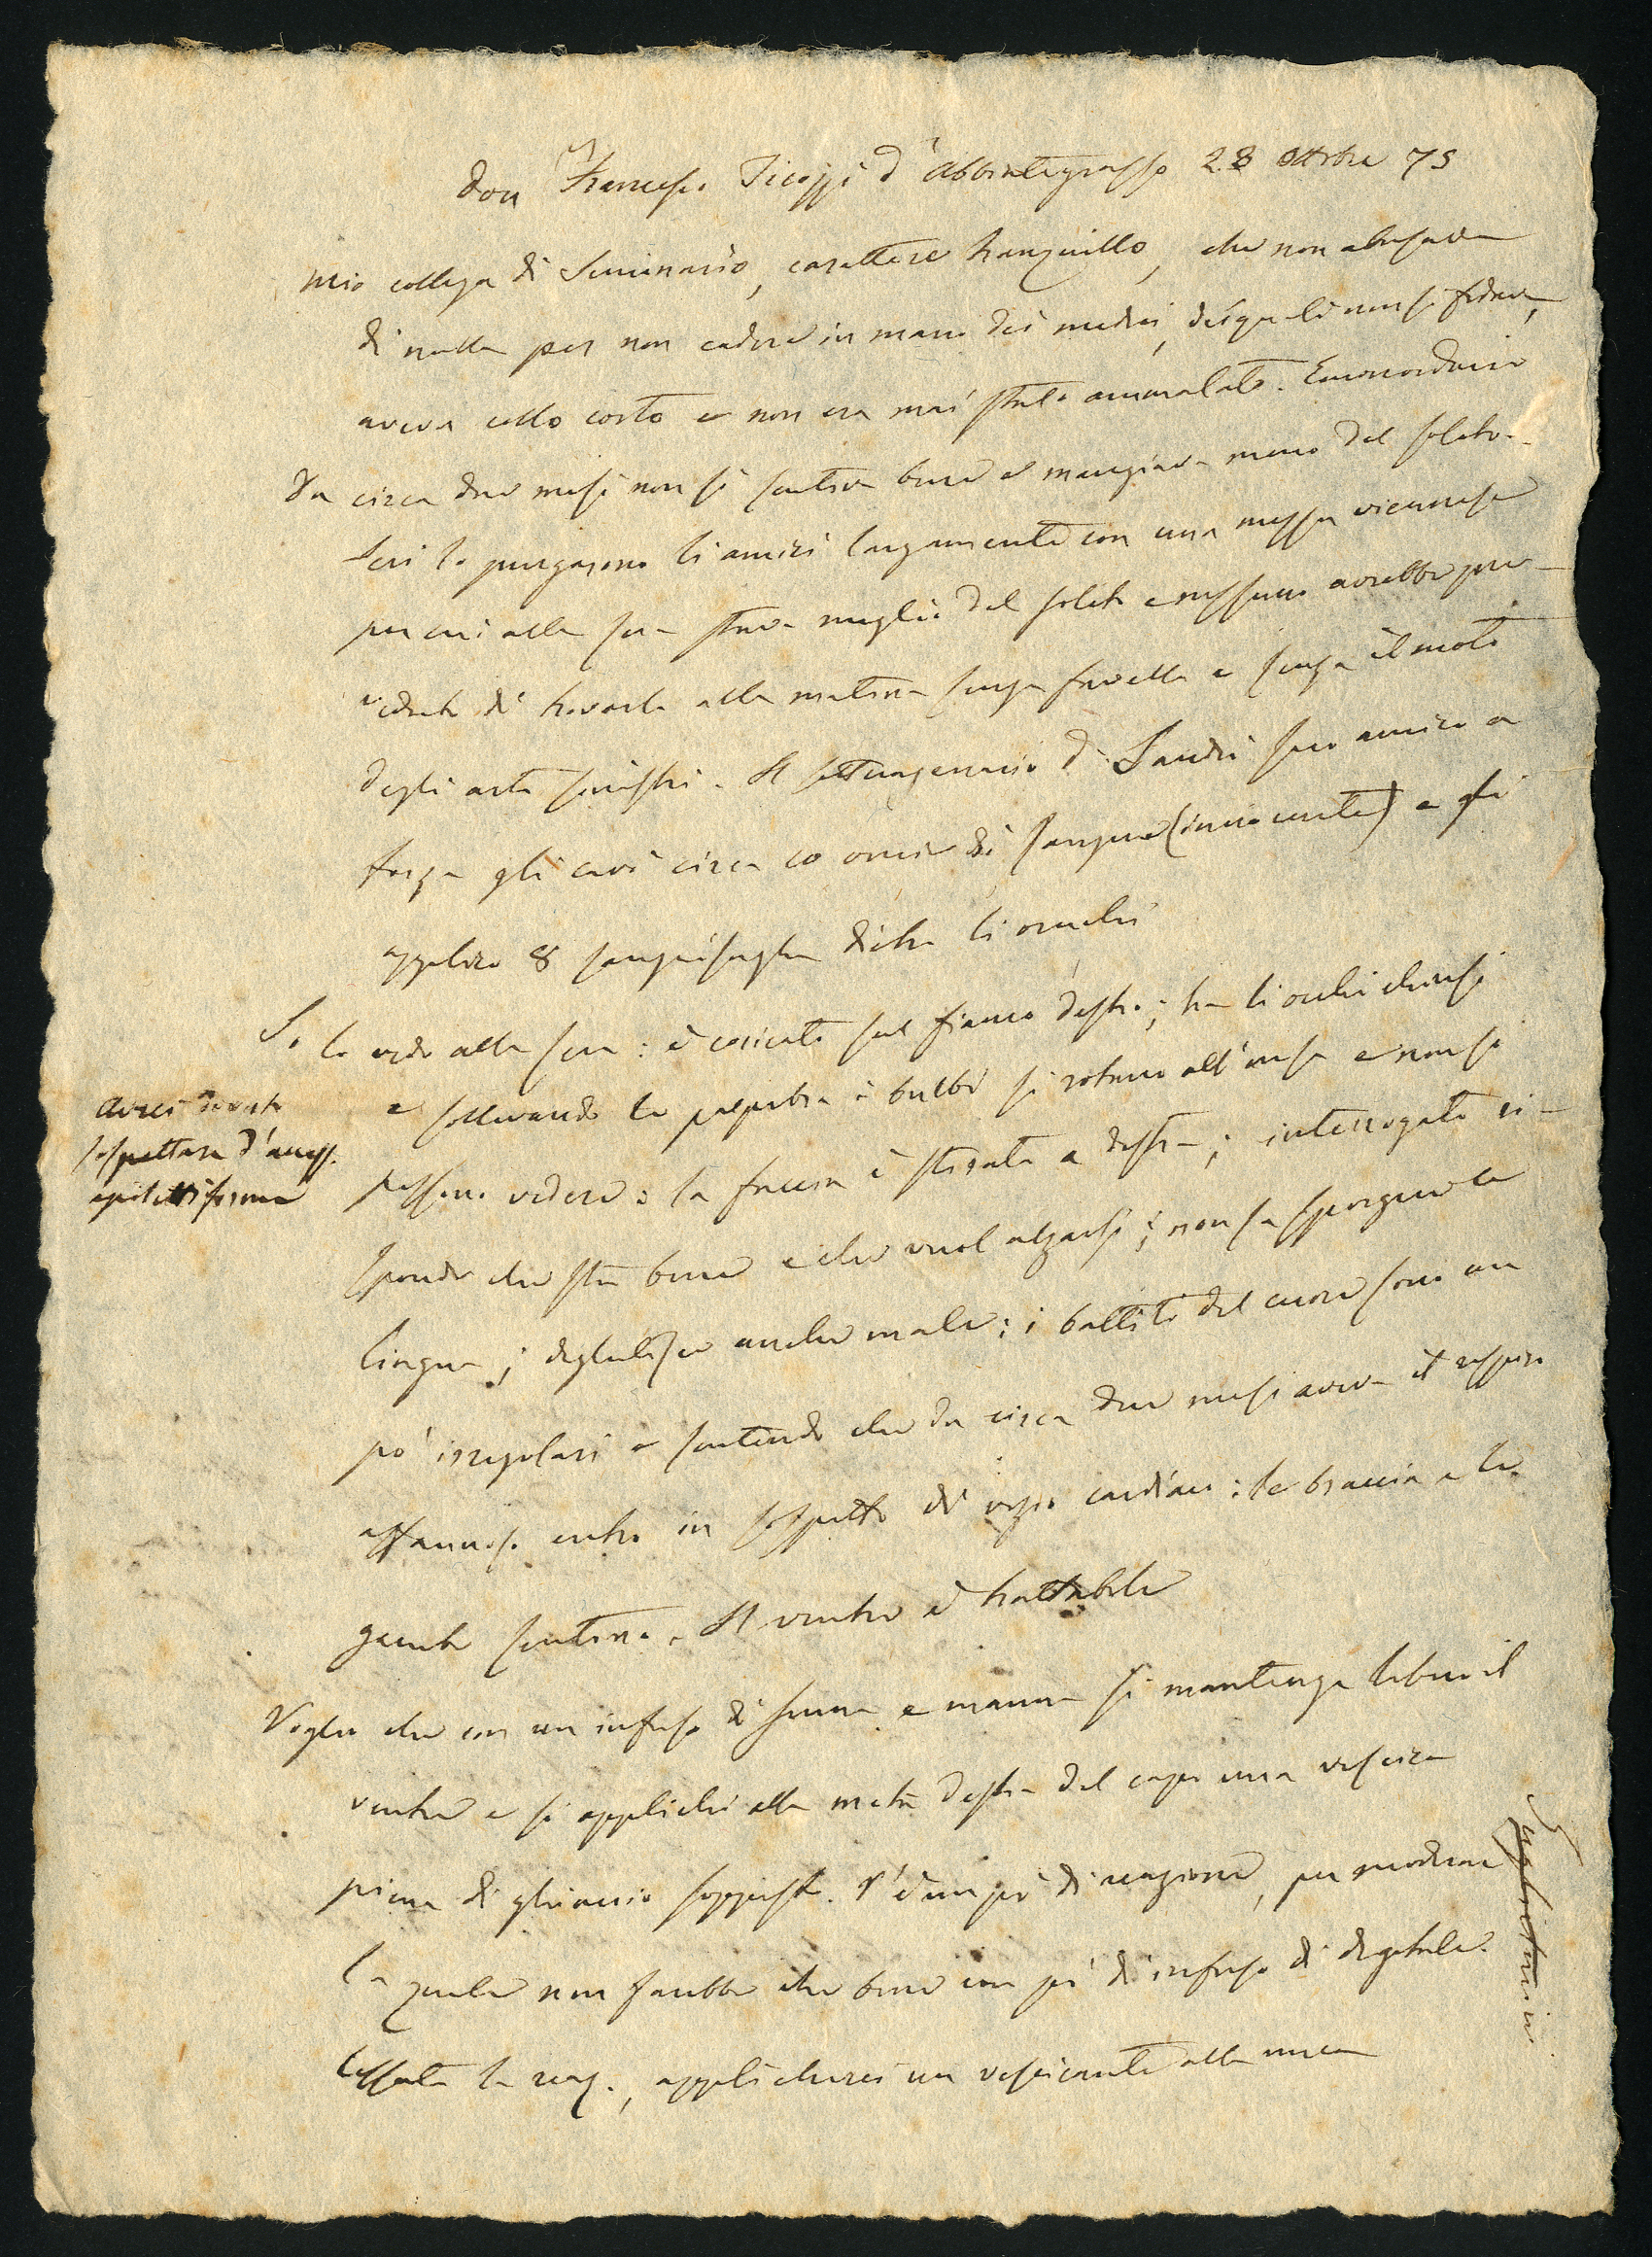 Don Francesco Ticozzi d'Abbiategrasso 28 Ottobre 75
Mio collega di Seminario, carattere tranquillo, che non abusava
di nulla per non cadere in mano dei medici, dei quali non si fidava,
aveva collo corto e non era mai stato ammalato. Emorroidario
da circa due mesi non si sentiva bene e mangiava meno del solito.
Ieri lo purgarono li amici largamente con una messa viennese
per cui alla sera stava meglio del solito e nessuno avrebbe pre-
veduto di trovarlo alla mattina senza favella e senza il moto
degli arti sinistri. Il settuagenario D. Sandri suo amico a
forza gli cavò circa 10 oncie di sangue (innocente) e fè
applicare 8 sanguisughe dietro li orecchi
Io lo vedo alla sera: è coricato sul fianco destro; ha li occhi chiusi
e sollevando le palpebre i bulbi si rotano all'insù e non si
possono vedere: la faccia è stirata a destra; interrogato ri-
sponde che sta bene e che vuol alzarsi; non sa sporgere la
lingua; deglutisce anche male; i battiti del cuore sono un
po' irregolari e sentendo che da circa due mesi aveva il respiro
affannoso entro in sospetto di vizio cardiaco: le braccia e le
gambe sentono. Il ventre è trattabile
Voglio che con un infuso di senna e manna si mantenga libero il
ventre e si applichi alla metà destra del capo una vescica
piena di ghiaccio soppesta. V'è un po' di reazione, per moderare
la quale non sarebbe che bene un po' di infuso di digitale.
Cessata la reaz., applicherei un vescicante alla nuca
Avrei dovuto
sospettare d'access.
epilettiforme